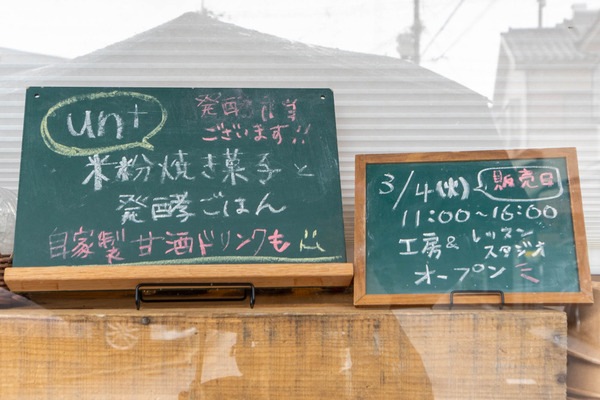 un+
発酵弁当
ございます!!
米粉焼き菓子と
発酵ごはん
自家製 甘酒ドリンクも
3/4(火) 販売日
11:00~16:00
工房& レッスン
スタジオ
オープン